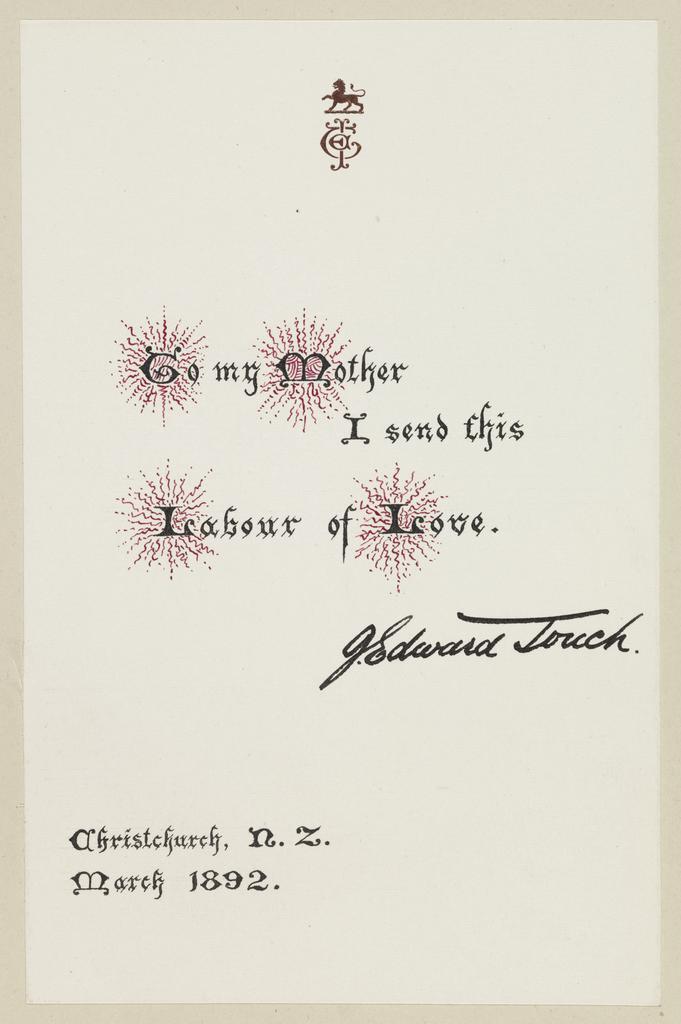 To my Mother
I send this
Labour of Love.
J. Edward Touch.
Christchurch, N. Z.
March 1892.